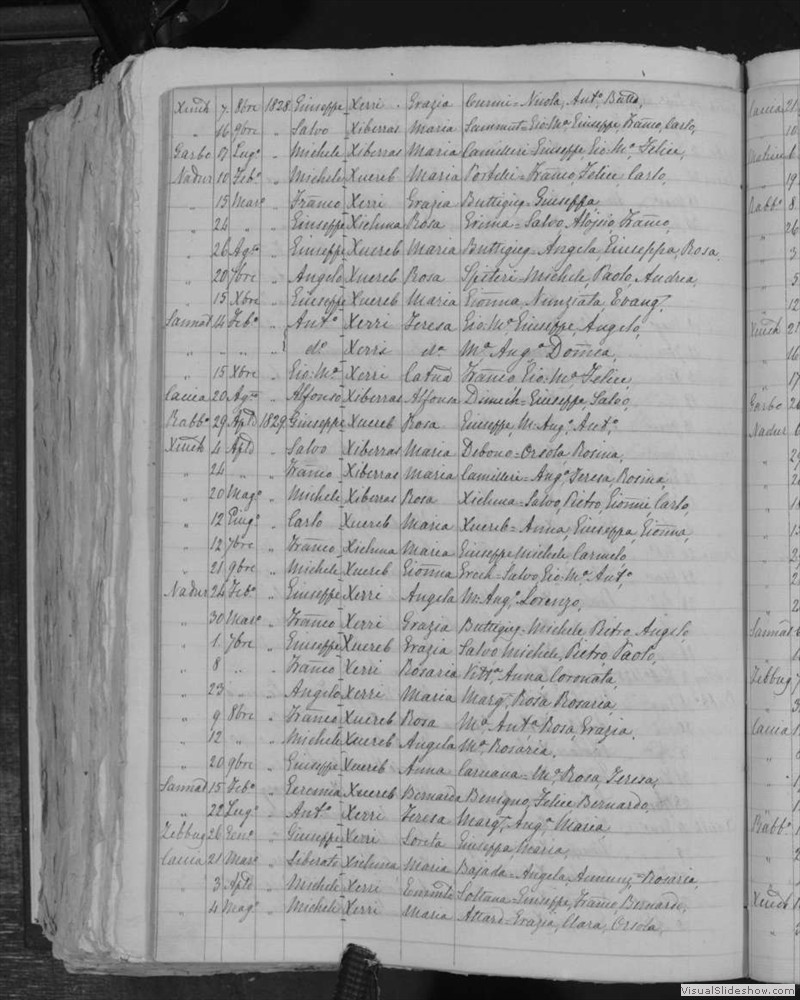 Xeuch 7 8bre 1828 Giuseppe Xerri Grazia Curmi = Nicola, Antº,
" 16 9bre " Salvo Xiberras Maria Sammut = Gio: Mª, Giuseppe, Franco, Carlo,
Garbo 17 Lugº " Michele Xiberras Maria Camilleri Giuseppe, Gio: Mª, Felice,
Nadur 10 Febº " Michele Xuereb Maria Portelli = Franco, Felice, Carlo,
" 15 Marº " Franco Xerri Grazia Buttigieg = Giuseppa
" 24 " " Giuseppe Xichuna Rosa = Salvo, Aloisio, Franco,
" 26 Agto " Giuseppe Xuereb Maria Buttigieg = Angela, Giuseppa, Rosa,
" 20 7bre " Angelo Xuereb Rosa Spiteri = Michele, Paolo, Andrea,
" 15 Xbre " Giuseppe Xuereb Maria Nunziata, Evang.
Sannat 14 Febº " Antº Xerri Teresa Gio: Mª, Giuseppe, Angelo,
" " " " dº Xerri dª Mª, Angª, Domca,
" 15 Xbre " Gio: Mª Xerri Catna Franco, Gio: Mª, Felice,
Caccia 20 Agto " Alfonso Xiberras Alfonsa Dimech = Giuseppe, Salvo,
Rabbº 29 Aple 1829 Giuseppe Xuereb Rosa Giuseppe, M: Angª, Antº,
Xeuch 4 Aple " Salvo Xiberras Maria Debono = Orsola, Rosina,
" 24 " " Franco Xiberras Maria Camilleri = Angª, Teresa, Rosina,
" 20 Magº " Michele Xiberras Rosa Xichuna = Salvo, Pietro, Carlo,
" 12 Giugº " Carlo Xuereb Maria Xuereb = Anna, Giuseppa,
" 12 7bre " Franco Xichuna Maria Giuseppe Michele Carmelo
" 21 9bre " Michele Xuereb = Salvo, Gio: Mª, Antº,
Nadur 24 Febº " Giuseppe Xerri Angela M: Angº, Lorenzo,
" 30 Marº " Franco Xerri Grazia Buttigieg = Michele Pietro, Angelo
" 1 7bre " Giuseppe Xuereb Grazia Salvo Michele, Pietro, Paolo,
" 8 " " Franco Xerri Rosaria Vittª, Anna Coronata,
" 23 " " Angelo Xerri Maria Margª, Rosa Rosaria
" 9 8bre " Franco Xuereb Rosa Mª, Antª Rosa, Grazia,
" 12 " " Michele Xuereb Angela Mª, Rosaria,
" 20 9bre " Giuseppe Xuereb Anna Caruana = Mª, Rosa, Teresa,
Sannat 15 Febº " Geremia Xuereb Bernarda Benigno, Felice Bernardo,
" 22 Lugº " Antº Xerri Teresa Margª, Angª, Maria
Zebbug 26 Genº " Giuseppe Xerri Loreta Giuseppa, Maria,
Caccia 21 Marº " Liberato Xichuna Maria Bajada = Angela, Annunz = Rosaria,
" 3 Aple " Michele Xerri Soltana = Giuseppe, Franco, Bernardo,
" 4 Magº " Michele Xerri Maria Attard = Grazia, Clara, Orsola,
VisualSlideshow.com